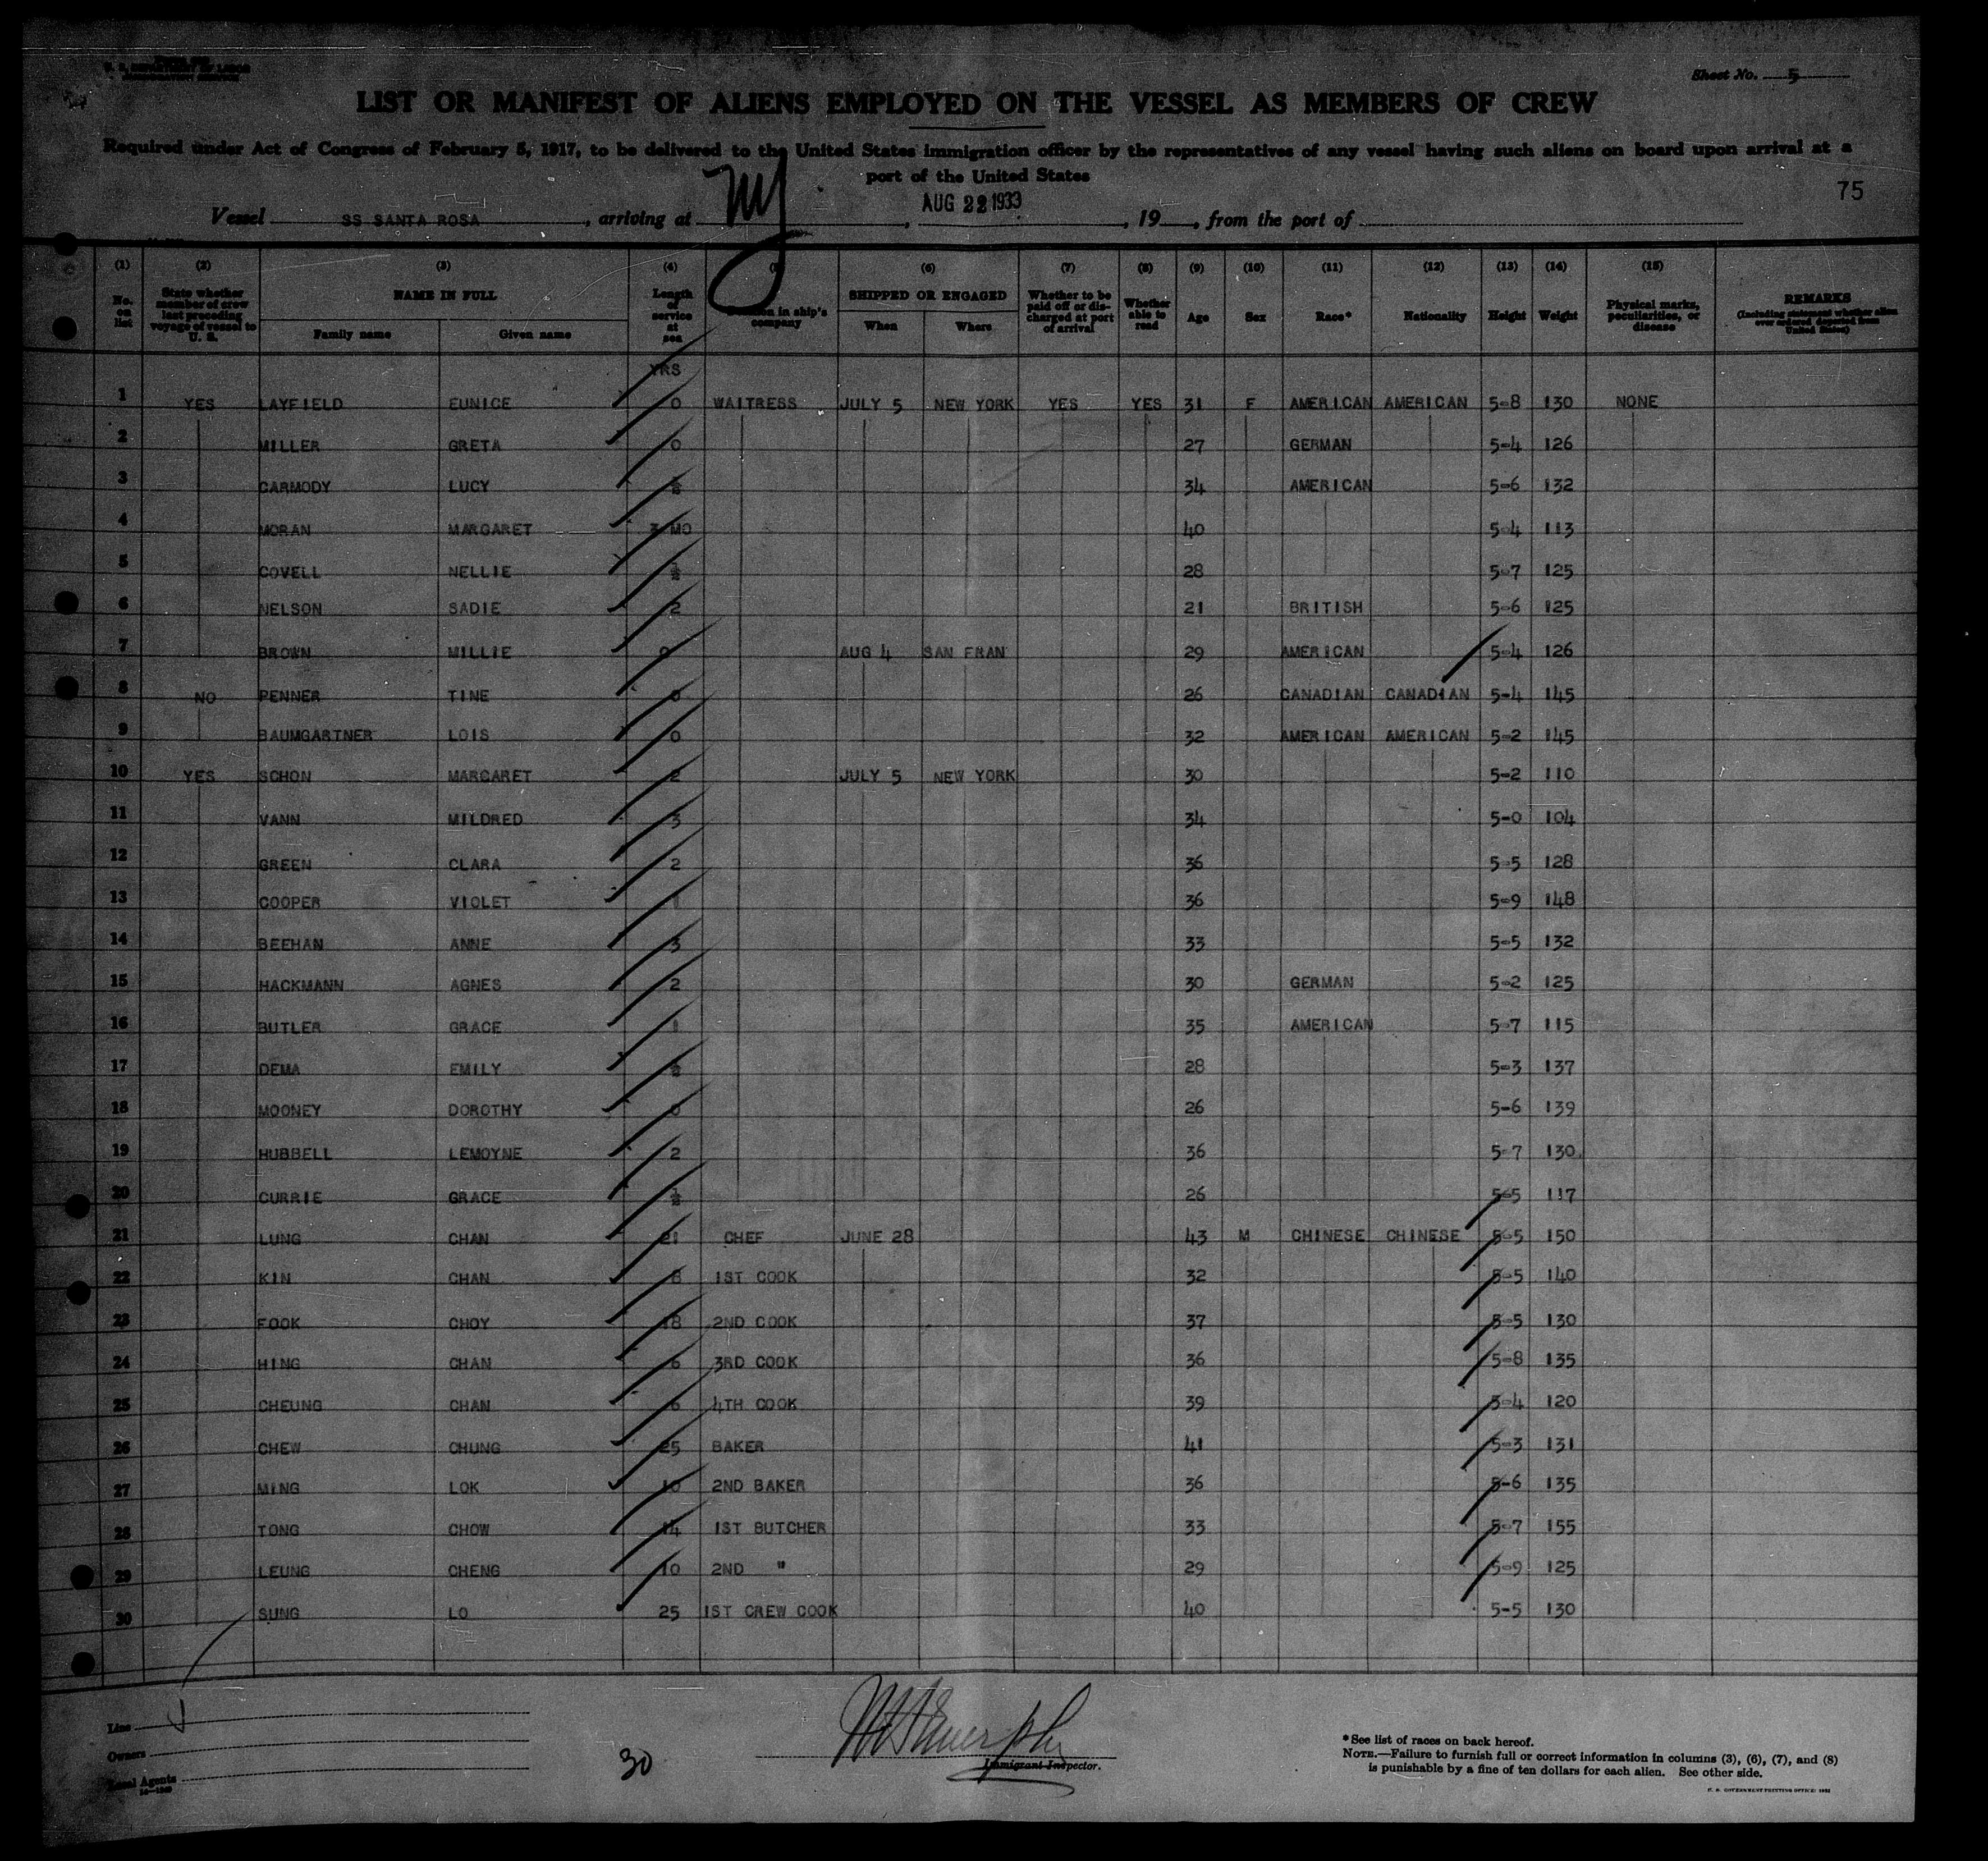 U. S. DEPARTMENT OF LABOR
Sheet No. 5
LIST OR MANIFEST OF ALIENS EMPLOYED ON THE VESSEL AS MEMBERS OF CREW
Required under Act of Congress of February 5, 1917, to be delivered to the United States immigration officer by the representatives of any vessel having such aliens on board upon arrival at a
port of the United States
75
Vessel SS SANTA ROSA, arriving at NY, AUG 22 1933, 19, from the port of
(1) (2) (3) (4) (5) (6) (7) (8) (9) (10) (11) (12) (13) (14) (15)
No. on list State whether member of crew last preceding voyage of vessel to U. S. NAME IN FULL Family name Given name Length of service at sea in ship's company SHIPPED OR ENGAGED When Where Whether to be paid off or discharged at port of arrival Whether able to read Age Sex Race* Nationality Height Weight Physical marks, peculiarities, or disease REMARKS (Including statement whether alien ever ordered deported from United States)
YRS
1 YES LAYFIELD EUNICE 0 WAITRESS JULY 5 NEW YORK YES YES 31 F AMERICAN AMERICAN 5-8 130 NONE
2 MILLER GRETA 0 27 GERMAN 5-4 126
3 CARMODY LUCY ½ 34 AMERICAN 5-6 132
4 MORAN MARGARET 3 MO 40 5-4 113
5 COVELL NELLIE ½ 28 5-7 125
6 NELSON SADIE 2 21 BRITISH 5-6 125
7 BROWN MILLIE 0 AUG 4 SAN FRAN 29 AMERICAN 5-4 126
8 NO PENNER TINE 0 26 CANADIAN CANADIAN 5-4 145
9 BAUMGARTNER LOIS 0 32 AMERICAN AMERICAN 5-2 145
10 YES SCHON MARGARET 2 JULY 5 NEW YORK 30 5-2 110
11 VANN MILDRED 3 34 5-0 104
12 GREEN CLARA 2 36 5-5 128
13 COOPER VIOLET 1 36 5-9 148
14 BEEHAN ANNE 3 33 5-5 132
15 HACKMANN AGNES 2 30 GERMAN 5-2 125
16 BUTLER GRACE 1 35 AMERICAN 5-7 115
17 DEMA EMILY ½ 28 5-3 137
18 MOONEY DOROTHY 0 26 5-6 139
19 HUBBELL LEMOYNE 2 36 5-7 130
20 CURRIE GRACE ½ 26 5-5 117
21 LUNG CHAN 21 CHEF JUNE 28 43 M CHINESE CHINESE 5-5 150
22 KIN CHAN 8 1ST COOK 32 5-5 140
23 FOOK CHOY 18 2ND COOK 37 5-5 130
24 HING CHAN 6 3RD COOK 36 5-8 135
25 CHEUNG CHAN 6 4TH COOK 39 5-4 120
26 CHEW CHUNG 25 BAKER 41 5-3 131
27 MING LOK 10 2ND BAKER 36 5-6 135
28 TONG CHOW 14 1ST BUTCHER 33 5-7 155
29 LEUNG CHENG 10 2ND " 29 5-9 125
30 SUNG LO 25 1ST CREW COOK 40 5-5 130
Line
Owners
Local Agents
30
Immigrant Inspector.
* See list of races on back hereof.
NOTE.—Failure to furnish full or correct information in columns (3), (6), (7), and (8)
is punishable by a fine of ten dollars for each alien. See other side.
U. S. GOVERNMENT PRINTING OFFICE: 1932